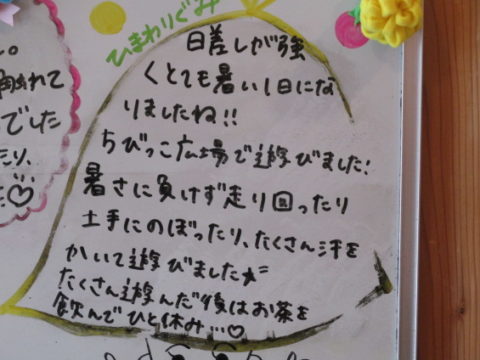 。
触れて
でした
たり、
♡
ひまわりぐみ
日差しが強
くとても暑い1日にな
りましたね!!
ちびっこ広場で遊びました!
暑さに負けず走り回ったり
土手にのぼったり、たくさん汗を
かいて遊びました
たくさん遊んだ後はお茶を
飲んでひと休み…♡